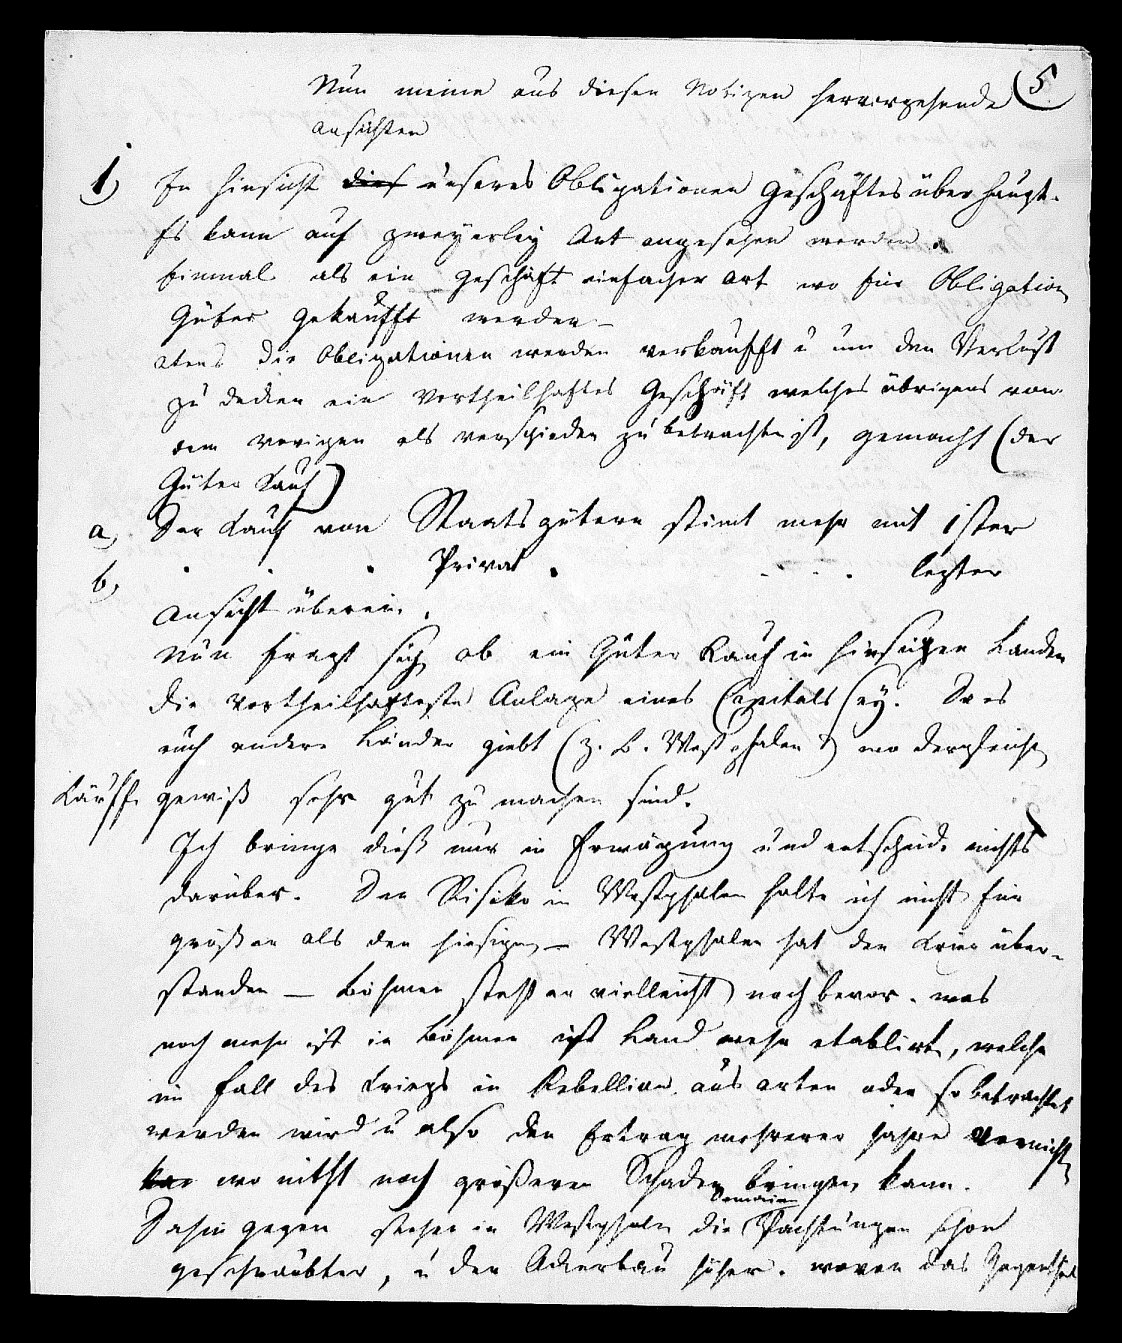 5
Nun meine aus diesen Notizen hervorgehende
ansichten
1, In Hinsicht dies unseres Obligationen Geschäftes überhaupt.
Es kann auf zweyerley Art angesehen werden.
Einmal als ein Geschäft einfacher Art wo für Obligation
Güter Gekaufft werden –
2tens die Obligationen werden verkaufft u um den Verlust
zu decken ein Vortheilhaftes Geschäft welches übrigens von
dem vorigen als verschieden zu betrachten ist, gemacht (der
Güter Kauf)
a, Der Kauf von Staatsgütern stimt mehr mit 1ster
b, " " " Privat " " " " lezter
Ansicht überein.
Nun fragt sich ob ein Güter Kauf in hiesigen Landen
die Vortheilhafteste Anlage eines Capitals sey. Da es
auch andere Länder giebt (z. B. Westphalen) wo dergleichen
Käuffe gewiß sehr gut zu machen sind.
Ich bringe dieß nur in Erwägung und entscheide nichts
darüber. Den Risiko in Westphalen halte ich nicht für
größer als den hiesigen – Westphalen hat den Krieg über-
standen – Böhmen steht er vielleicht noch bevor. was
noch mehr ist in Böhmen ist Land mehr etablirt, welche
im Fall des Kriegs in Rebellion aus arten oder so betrachtet
werden wird u also den Ertrag mehrerer Jahre vernichten
wo nicht noch größeren Schaden bringen kann.
Dahin gegen stehen in Westphalen die Domainen Pachtungen schon
geschraubter, u der Ackerbau höher. wovon das Gegentheil